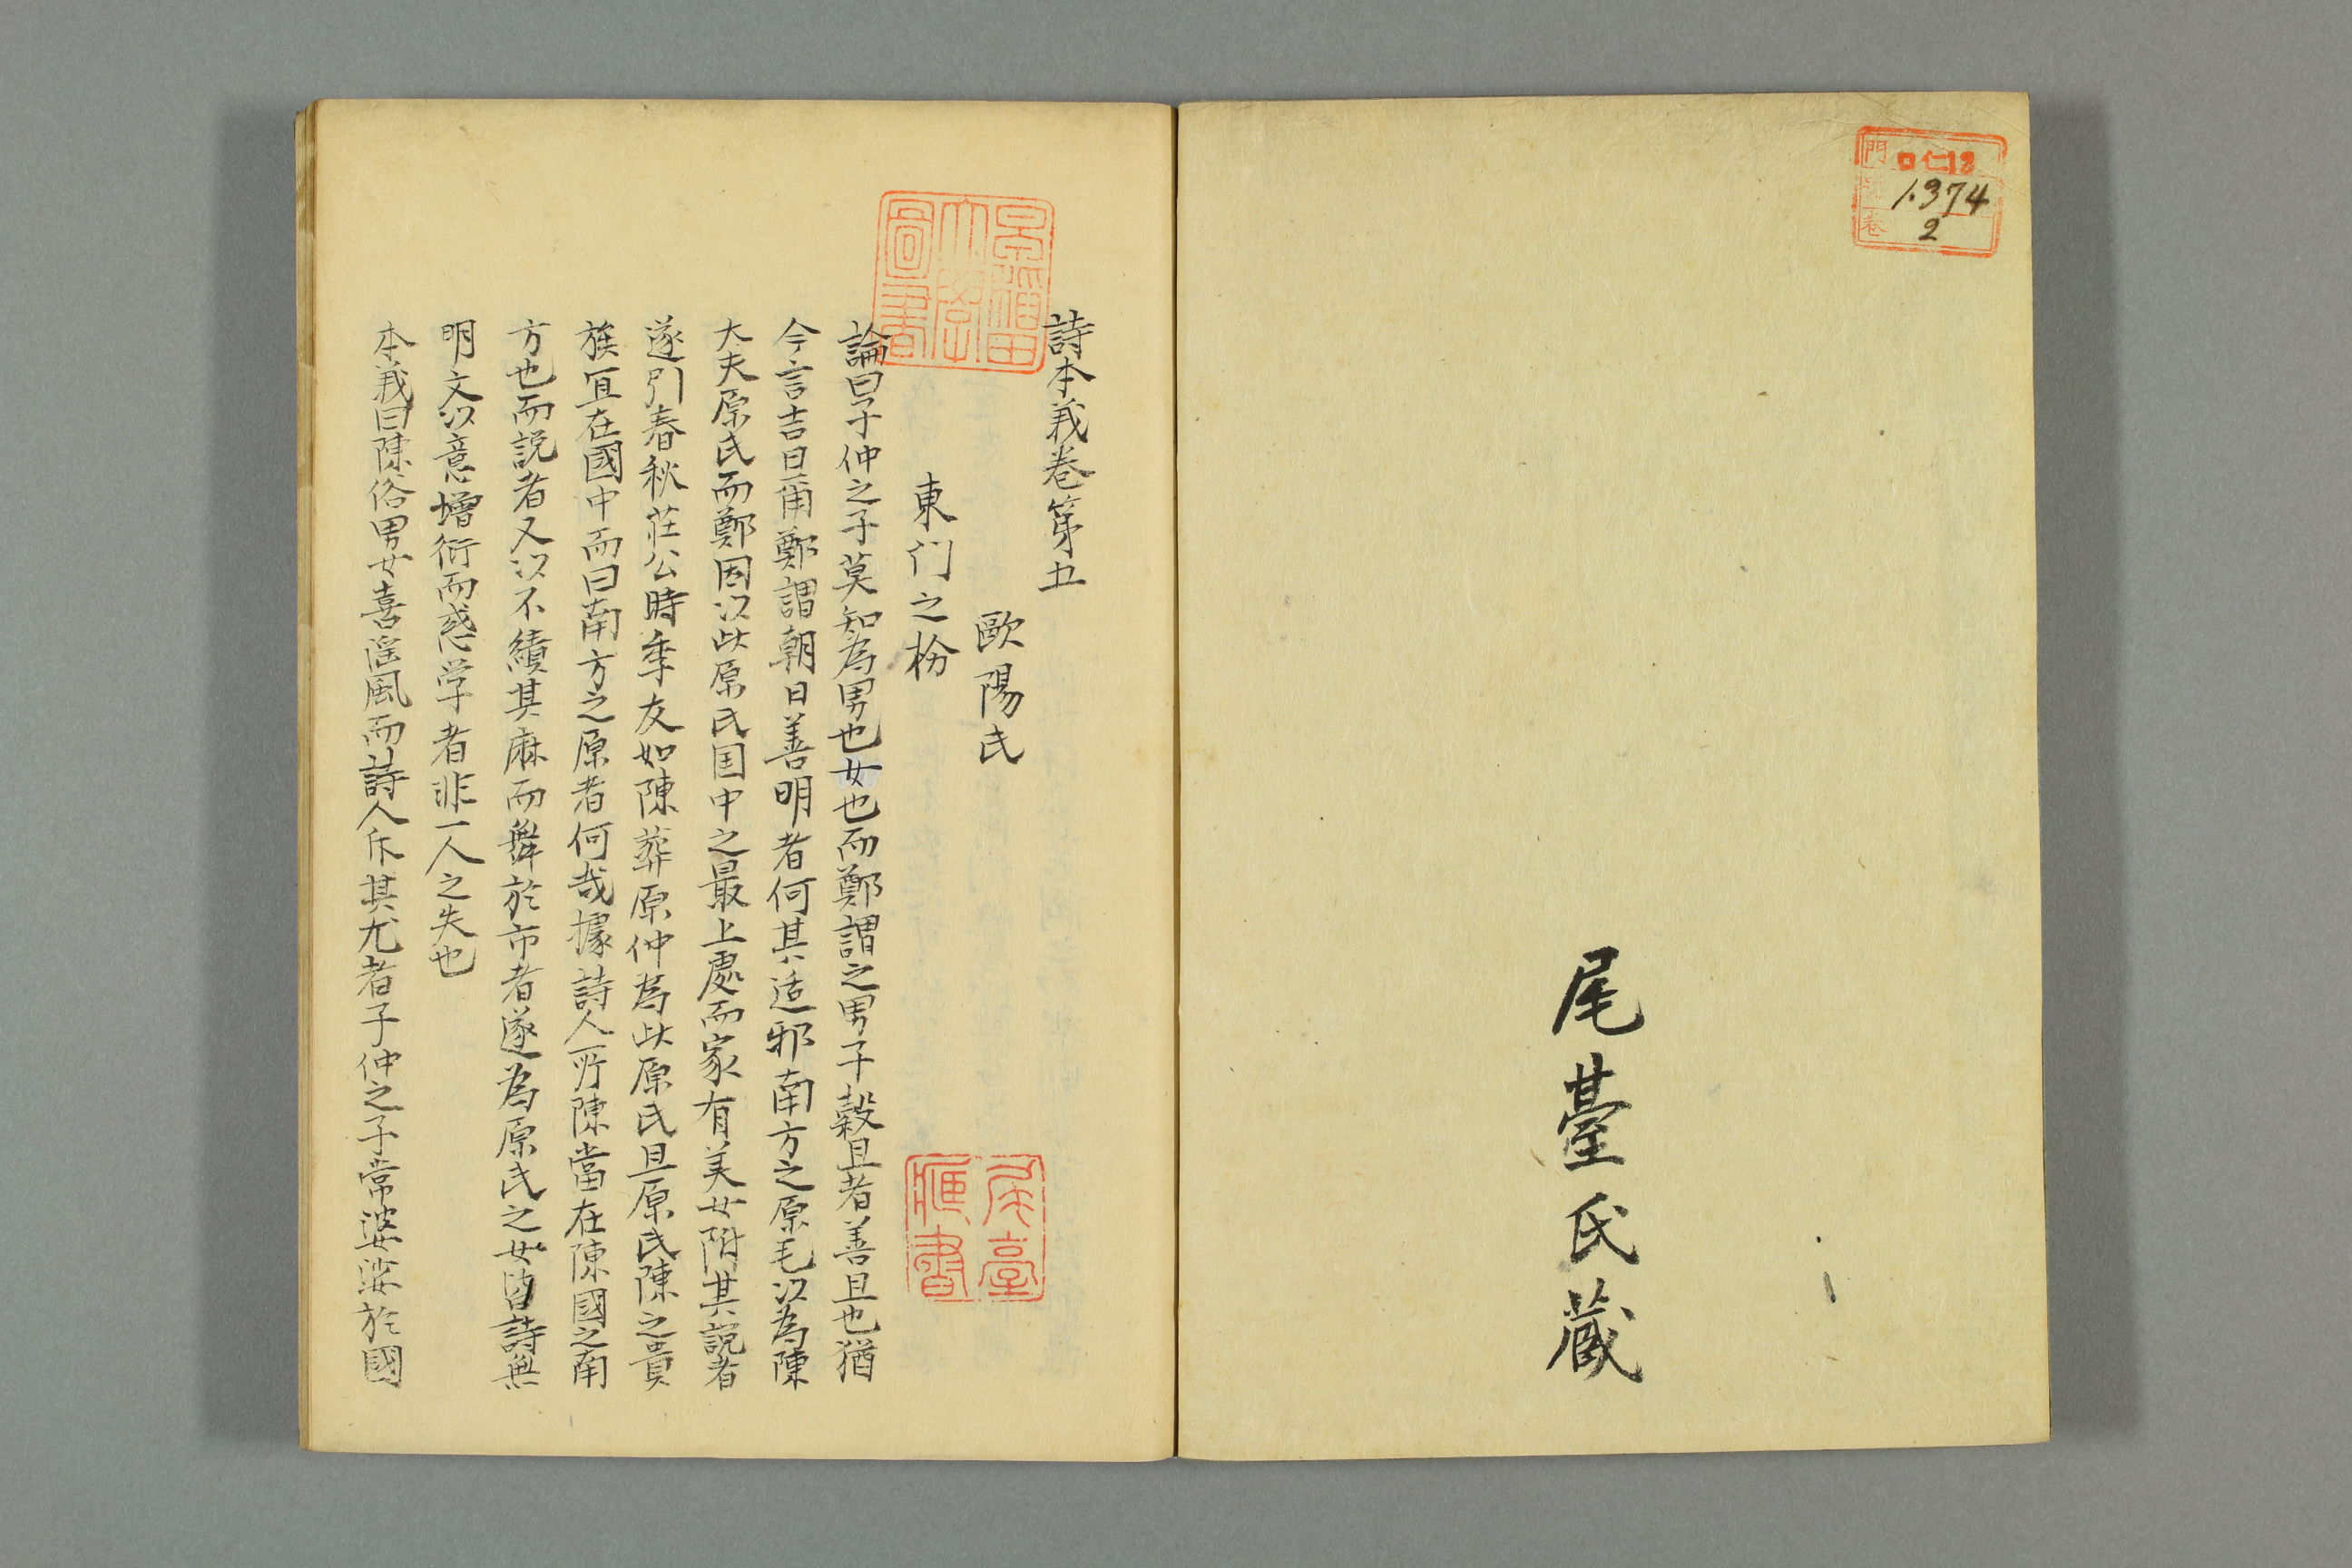 門 ロ仁12
號 1.374
卷 2
尾臺氏藏
早稲田大學圖書
詩本義卷第五
歐陽氏
東门之枌
尾臺藏書
論曰子仲之子莫知為男也女也而鄭謂之男子穀旦者善旦也猶
今言吉日甭鄭謂朝日善明者何其迂邪南方之原毛以為陳
大夫原氏而鄭因以此原氏国中之最上處而家有美女附其説者
遂引春秋莊公時季友如陳葬原仲為此原氏且原氏陳之貴
族冝在國中而曰南方之原者何哉據詩人所陳當在陳國之南
方也而説者又以不績其麻而舞於市者遂為原氏之女皆詩無
明文以意增衍而惑学者非一人之失也
本義曰陳俗男女喜淫風而詩人斥其尤者子仲之子常婆娑於國